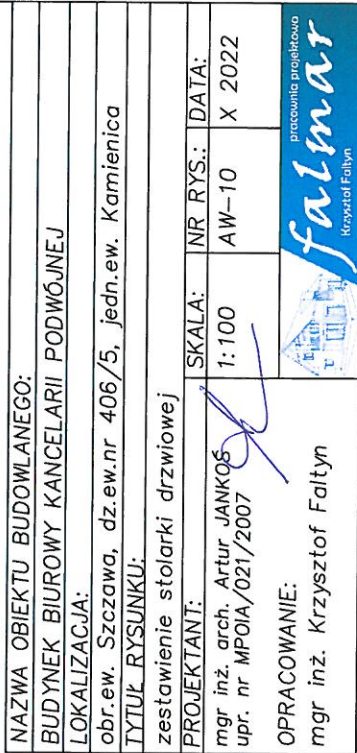 NAZWA OBIEKTU BUDOWLANEGO:
BUDYNEK BIUROWY KANCELARII PODWÓJNEJ
LOKALIZACJA:
obr.ew. Szczawa, dz.ew.nr 406/5, jedn.ew. Kamienica
TYTUŁ RYSUNKU:
zestawienie stolarki drzwiowej
PROJEKTANT:
mgr inż. arch. Artur JANKOŚ
upr. nr MPOIA/021/2007
SKALA:
1:100
NR RYS.:
AW-10
DATA:
X 2022
OPRACOWANIE:
mgr inż. Krzysztof Fałtyn
pracownia projektowa
falmar
Krzysztof Fałtyn